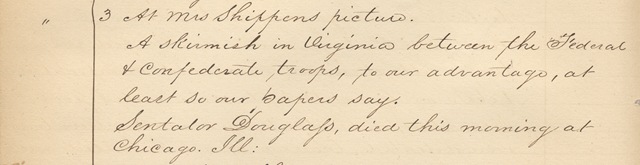 " 3 At Mrs Shippens picture.
A skirmish in Virginia between the Federal
& Confederate troops, to our advantage, at
least so our papers say.
Sentator Douglass, died this morning at
Chicago. Ill: